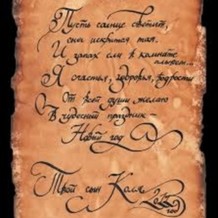 Пусть солнце светит,
снег искрится тая,
И запах ели в комнате
Я счастья, здоровья, бодрости
От всей души желаю
В чудесный праздник
Новый год
Твой сын Коля
год